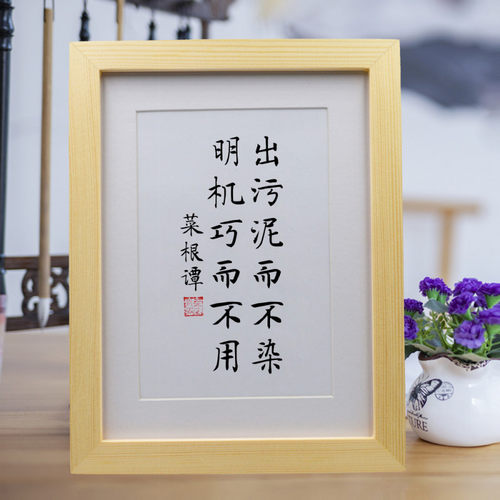 出污泥而不染
明机巧而不用
菜根谭
TURE